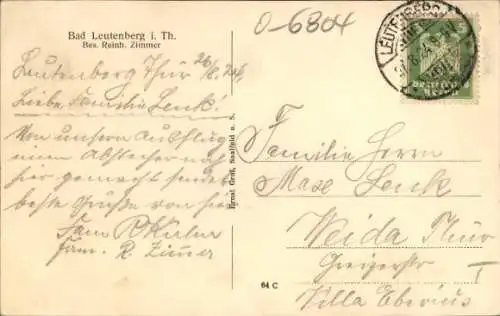 Bad Leutenberg i. Th.
Bes. Reinh. Zimmer
0-6804
LEUTENBERG
Leutenberg Thür 26/6. 24.
Liebe Familie Lenk!
Von unserm Ausflug
einen Abstecher nach
hier gemacht senden
beste Grüße von hier
Fam.
Fam. R. Zimer
Ernst Gräf, Saalfeld a. S.
64 C
Familie Herrn
Max Lenk
Weida Thür
Greizerstr
I
Villa Eberius
DEUTSCHES
REICH